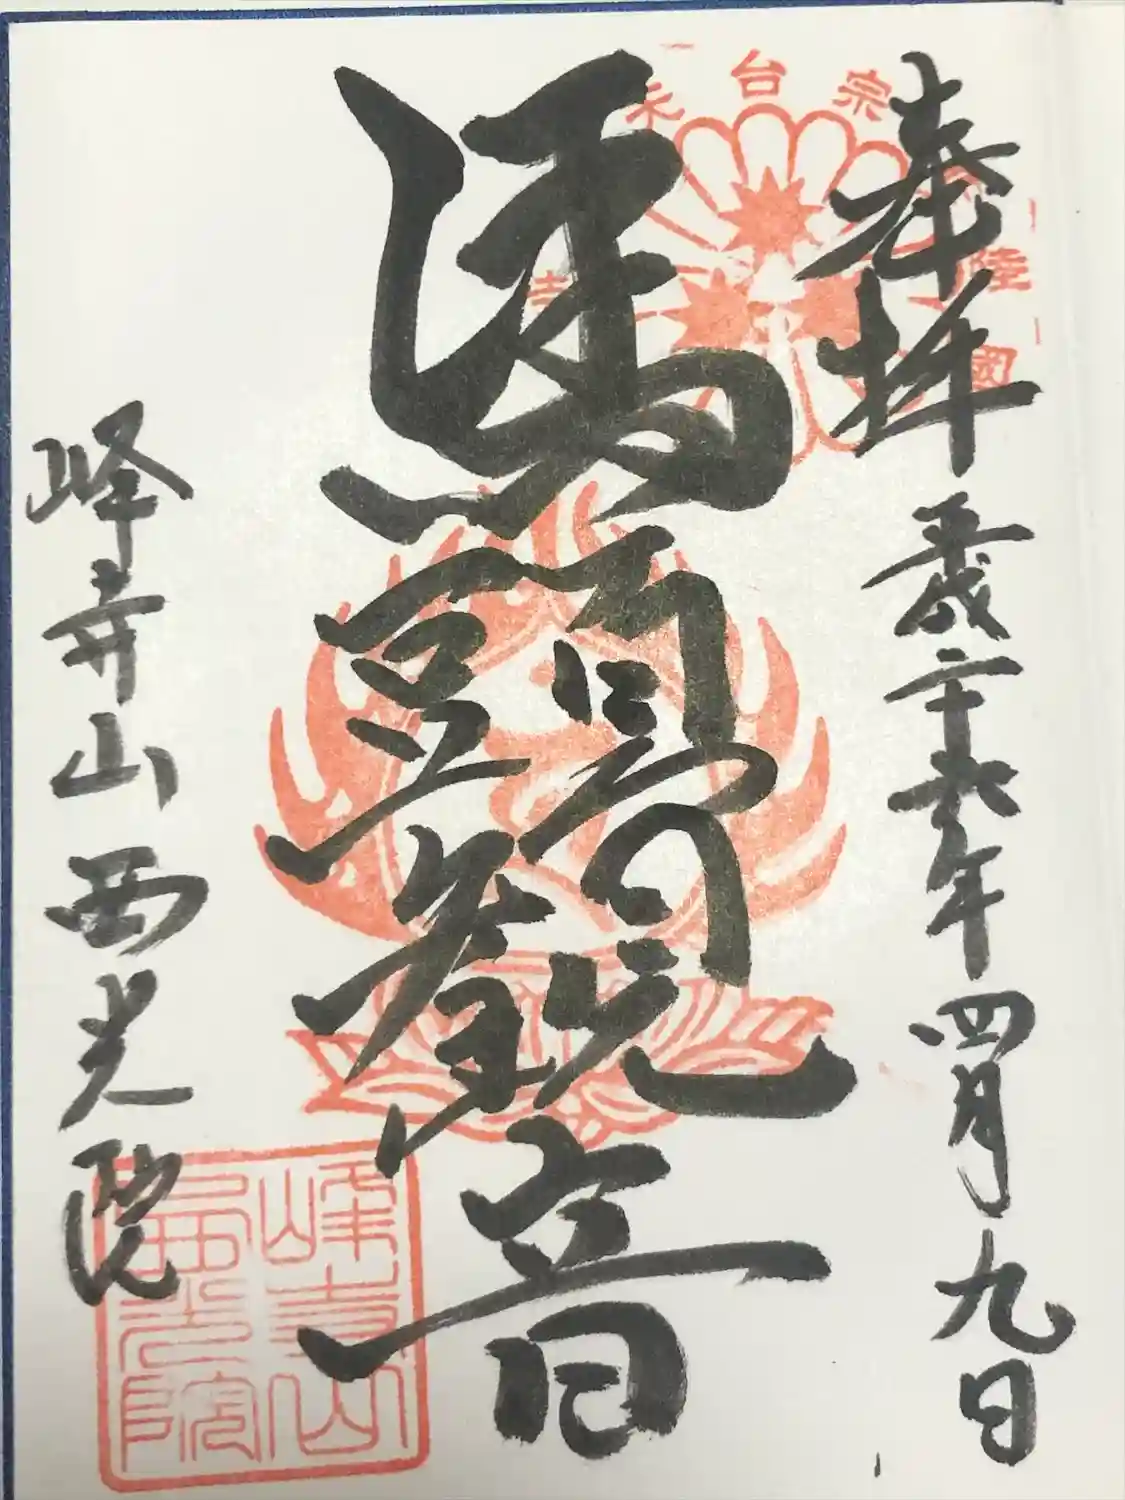 奉拝
平成二十九年四月九日
馬頭観音
峰寺山西光院
台宗
陸
國
峰寺山
西光院